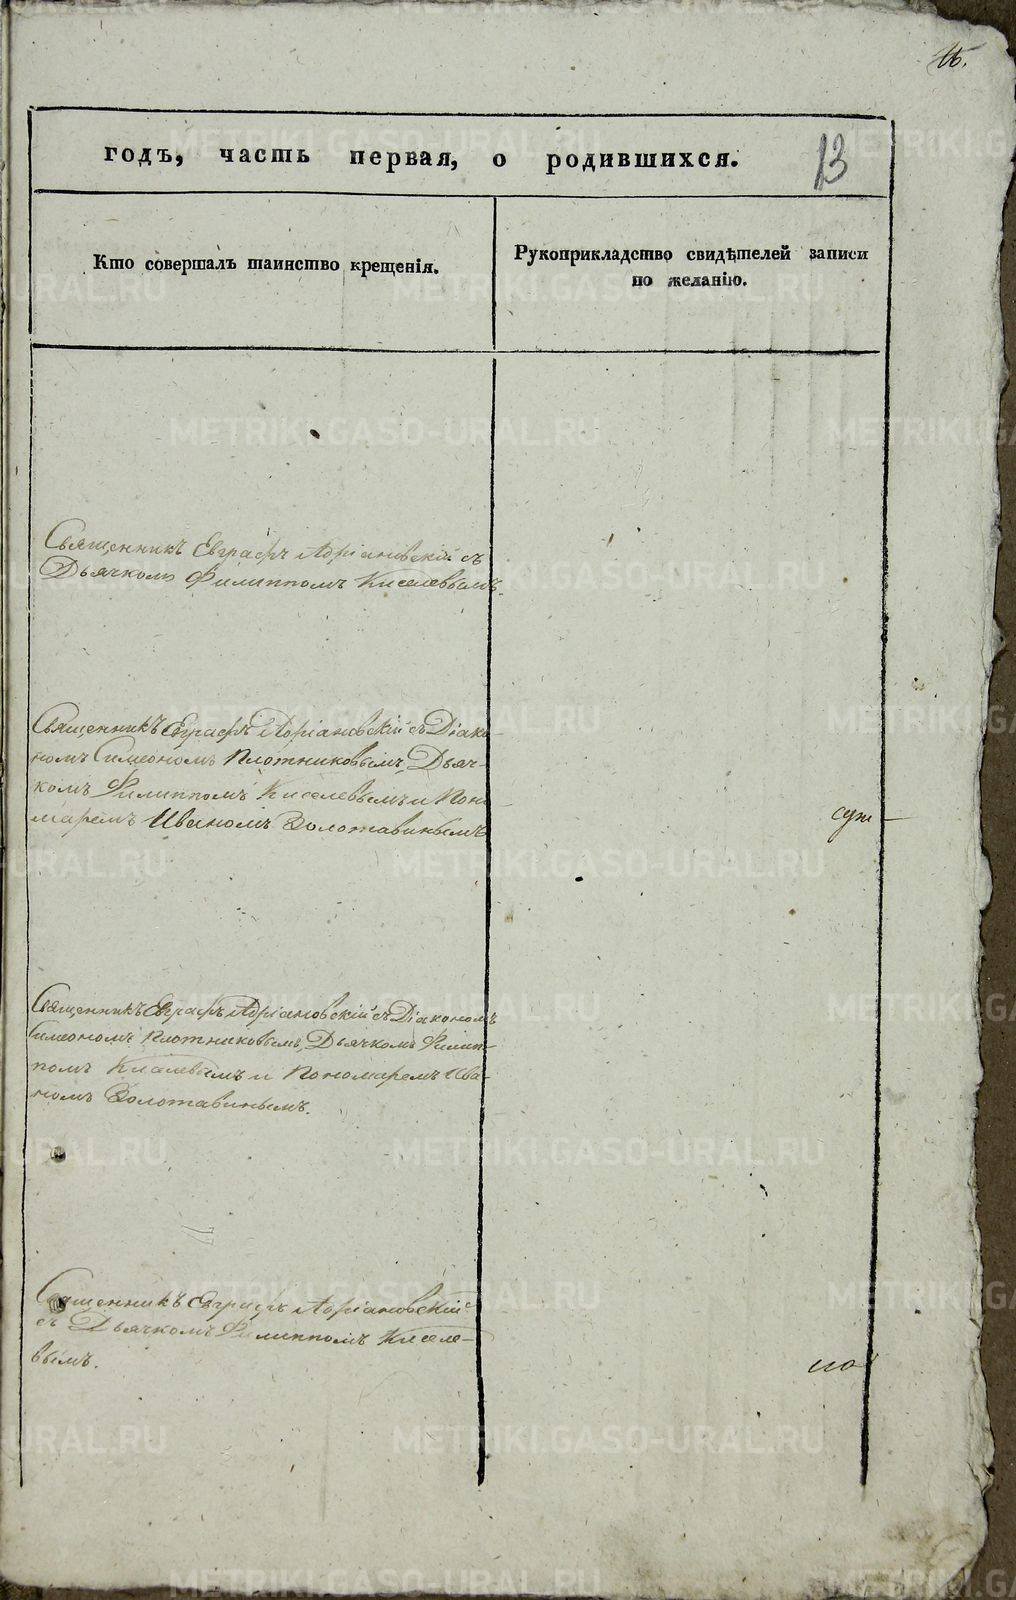 16.
13
годъ, часть первая, о родившихся.
Кто совершалъ таинство крещенія.
Рукоприкладство свидѣтелей записи
по желанію.
Священникъ Евграфъ Адріановскій съ
Дьячкомъ Филиппомъ Киселевымъ.
Священникъ Евграфъ Адріановскій съ Діако-
номъ Симеономъ Плотниковымъ, Дьяч-
комъ Филиппомъ Киселевымъ и Поно-
маремъ Иваномъ Золотавинымъ
Священникъ Евграфъ Адріановскій съ Діакономъ
Симеономъ Плотниковымъ, Дьячкомъ Филип-
помъ Киселевымъ и Пономаремъ Ива-
номъ Золотавинымъ.
Священникъ Евграфъ Адріановскій
съ Дьячкомъ Филиппомъ Киселе-
вымъ.
METRIKI.GASO-URAL.RU